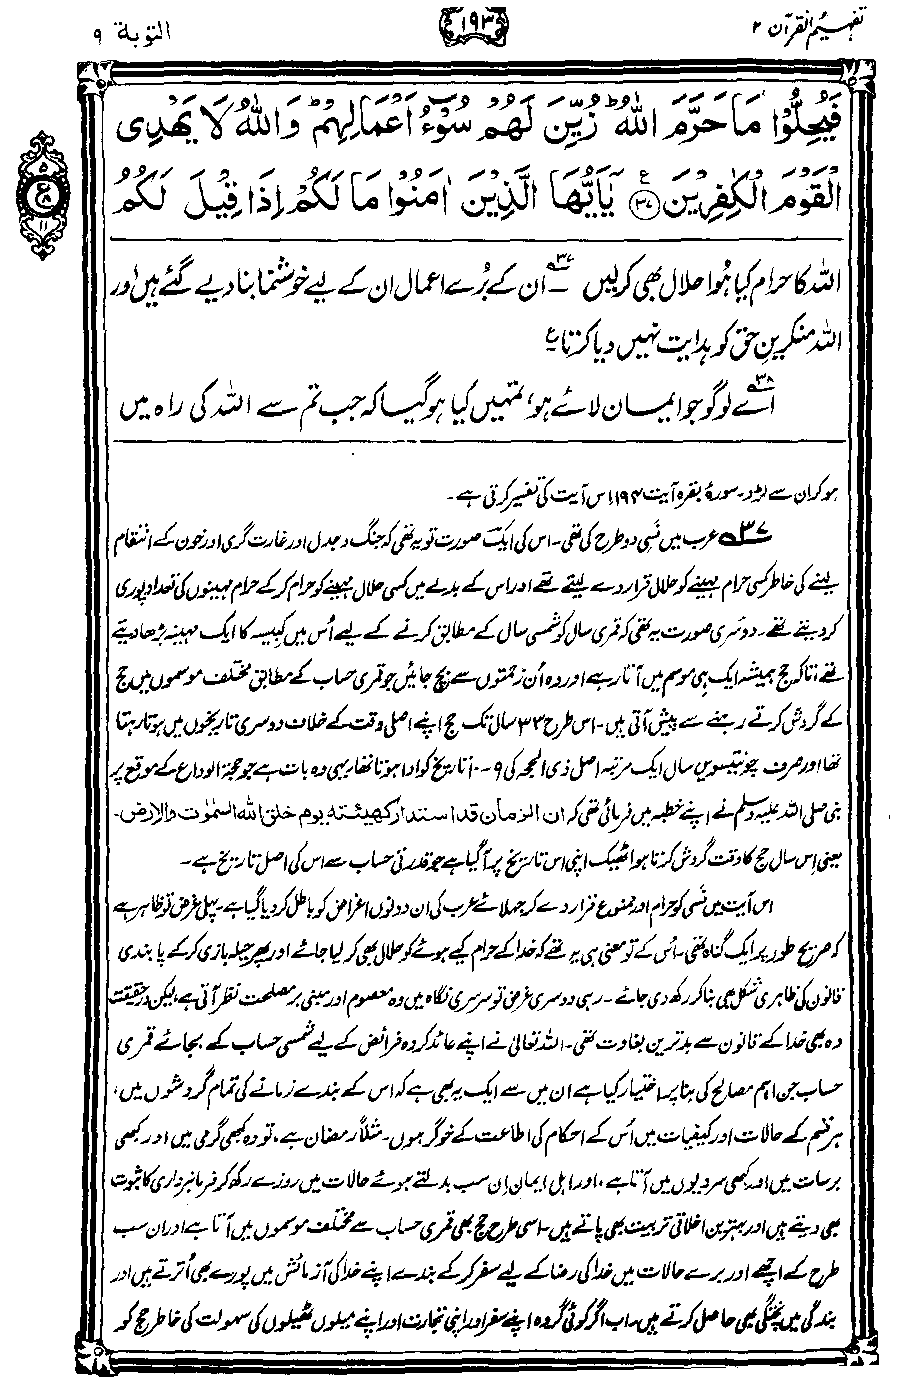 تفہیم القرآن ۲
۱۹۳
التوبة ۹
فَيُحِلُّوْا مَا حَرَّمَ اللّٰهُ ؕ زُيِّنَ لَهُمْ سُوْٓءُ اَعْمَالِهِمْ ؕ وَاللّٰهُ لَا يَهْدِى
الْقَوْمَ الْكٰفِرِيْنَ ۳۷ يٰۤاَيُّهَا الَّذِيْنَ اٰمَنُوْا مَا لَكُمْ اِذَا قِيْلَ لَكُمُ
۵
ع
۸
۱۱
اللہ کا حرام کیا ہُوا حلال بھی کرلیں ۳۷ ان کے بُرے اعمال ان کے لیے خوشنما بنا دیے گئے ہیں اور
اللہ منکرینِ حق کو ہدایت نہیں دیا کرتا ع
۳۸ اے لوگو جو ایمان لائے ہو، تمہیں کیا ہوگیا کہ جب تم سے اللہ کی راہ میں
ہوکر ان سے لڑو۔ سورۂ بقرہ آیت ۱۹۴ اس آیت کی تفسیر کرتی ہے۔
۳۷ عرب میں نسی دو طرح کی تھی۔ اس کی ایک صورت تو یہ تھی کہ جنگ وجدل اور غارت گری اور خون کے انتقام
لینے کی خاطر کسی حرام مہینے کو حلال قرار دے لیتے تھے اور اس کے بدلے میں کسی حلال مہینے کو حرام کرکے حرام مہینوں کی تعداد پوری
کردیتے تھے۔ دوسری صورت یہ تھی کہ قمری سال کو شمسی سال کے مطابق کرنے کے لیے اُس میں کبیسہ کا ایک مہینہ بڑھا دیتے
تھے، تاکہ حج ہمیشہ ایک ہی موسم میں آتا رہے اور وہ اُن زحمتوں سے بچ جائیں جو قمری حساب کے مطابق مختلف موسموں میں حج
کے گردش کرتے رہنے سے پیش آتی ہیں۔ اس طرح ۳۳ سال تک حج اپنے اصلی وقت کے خلاف دوسری تاریخوں میں ہوتا رہتا
تھا اور صرف چونتیسویں سال ایک مرتبہ اصل ذی الحجہ کی ۹۔۱۰ تاریخ کو ادا ہوتا تھا۔ یہی وہ بات ہے جو حجۃ الوداع کے موقع پر
نبی صلی اللہ علیہ وسلم نے اپنے خطبہ میں فرمائی تھی کہ ان الزمان قد استدار کھیئتہ یوم خلق اللہ السمٰوٰت والارض۔
یعنی اس سال حج کا وقت گردش کرتا ہوا ٹھیک اپنی اس تاریخ پر آگیا ہے جو قدرتی حساب سے اس کی اصل تاریخ ہے۔
اس آیت میں نسی کو حرام اور ممنوع قرار دے کر جہلائے عرب کی ان دونوں اغراض کو باطل کردیا گیا ہے۔ پہلی غرض تو ظاہر ہے
کہ صریح طور پر ایک گناہ تھی۔ اُس کے تو معنی ہی یہ تھے کہ خدا کے حرام کیے ہوئے کو حلال بھی کرلیا جائے اور پھر حیلہ بازی کرکے پابندی
قانون کی ظاہری شکل بھی بنا کر رکھ دی جائے۔ رہی دوسری غرض تو سرسری نگاہ میں وہ معصوم اور مبنی بر مصلحت نظر آتی ہے، لیکن درحقیقت
وہ بھی خدا کے قانون سے بدترین بغاوت تھی۔ اللہ تعالیٰ نے اپنے عائد کردہ فرائض کے لیے شمسی حساب کے بجائے قمری
حساب جن اہم مصالح کی بنا پر اختیار کیا ہے ان میں سے ایک یہ بھی ہے کہ اس کے بندے زمانے کی تمام گردشوں میں،
ہر قسم کے حالات اور کیفیات میں اُس کے احکام کی اطاعت کے خوگر ہوں۔ مثلاً رمضان ہے، تو وہ کبھی گرمی میں اور کبھی
برسات میں اور کبھی سردیوں میں آتا ہے، اور اہل ایمان ان سب بدلتے ہوئے حالات میں روزے رکھ کر فرمانبرداری کا ثبوت
بھی دیتے ہیں اور بہترین اخلاقی تربیت بھی پاتے ہیں۔ اسی طرح حج بھی قمری حساب سے مختلف موسموں میں آتا ہے اور ان سب
طرح کے اچھے اور برے حالات میں خدا کی رضا کے لیے سفر کرکے بندے اپنے خدا کی آزمائش میں پورے بھی اُترتے ہیں اور
بندگی میں پختگی بھی حاصل کرتے ہیں۔ اب اگر کوئی گروہ اپنے سفر اور اپنی تجارت اور اپنے میلوں ٹھیلوں کی سہولت کی خاطر حج کو